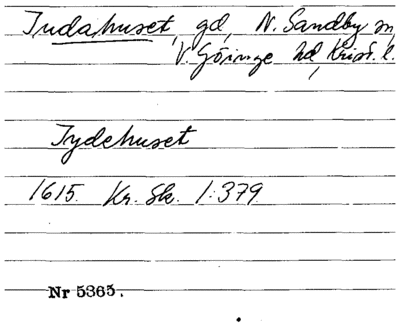 Judahuset, gd, N. Sandby sn,
V. Göinge hd, Krist. l.
Jydehuset
1615. Kr. Sk. 1:379.
Nr 5365.